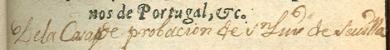 nos de Portugal, &c.
De la Casa de probacion de Sn Luis de Seuilla